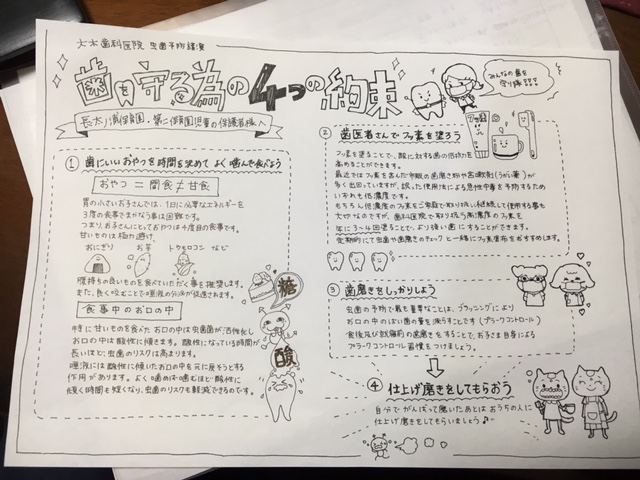 大木歯科医院 虫歯予防講演
歯を守る為の4つの約束
みんなの歯を
守り隊!!!
長太ノ浦保育園・第一保育園児童の保護者様へ
① 歯にいいおやつを時間を決めて よく噛んで食べよう
おやつ = 間食 ≠ 甘食
胃の小さいお子さんでは、1日に必要なエネルギーを
3度の食事でまかなう事は困難です。
つまり、お子さんにとしておやつは4度目の食事です。
甘いものは極力避け、
おにぎり お芋 トウモロコシ など
腹持ちの良いものを食べていただく事を推奨します。
また、良く噛むことで唾液の分泌が促進されます。
食事中のお口の中
特に甘いものを食べた お口の中は虫歯菌が活性化し
お口の中は酸性に傾きます。酸性になっている時間が
長いほど、虫歯のリスクは高まります。
唾液には酸性に傾いたお口の中を元に戻そうとする
作用があります。よく噛めば噛むほど酸性に
傾く時間も短くなり、虫歯のリスクも軽減できるのです。
糖
酸
② 歯医者さんでフッ素を塗ろう
フッ素を塗ることで、酸に対する歯の抵抗力を
高めることができます。
最近ではフッ素を含んだ市販の歯磨き粉や含嗽剤(うがい薬)が
多く出回っていますが、誤った使用法による急性中毒を予防するため
いずれも低濃度です。
もちろん低濃度のフッ素をご家庭で取り扱い継続して使用する事も
大切なのですが、歯科医院で取り扱う高濃度のフッ素を
年に3〜4回塗ることで、より強い歯にすることができます。
定期的にて虫歯や歯磨きのチェックと一緒にフッ素塗布をおすすめします。
③ 歯磨きをしっかりしよう
虫歯の予防で最も重要なことは、ブラッシングにより
お口の中のばい菌の量を減らすことです(プラークコントロール)
食後及び就寝前の歯磨きをすることで、お子さん自身による
プラークコントロール習慣をつけましょう。
④ 仕上げ磨きをしてもらおう
自分で がんばって磨いたあとは おうちの人に
仕上げ磨きをしてもらいましょう♪